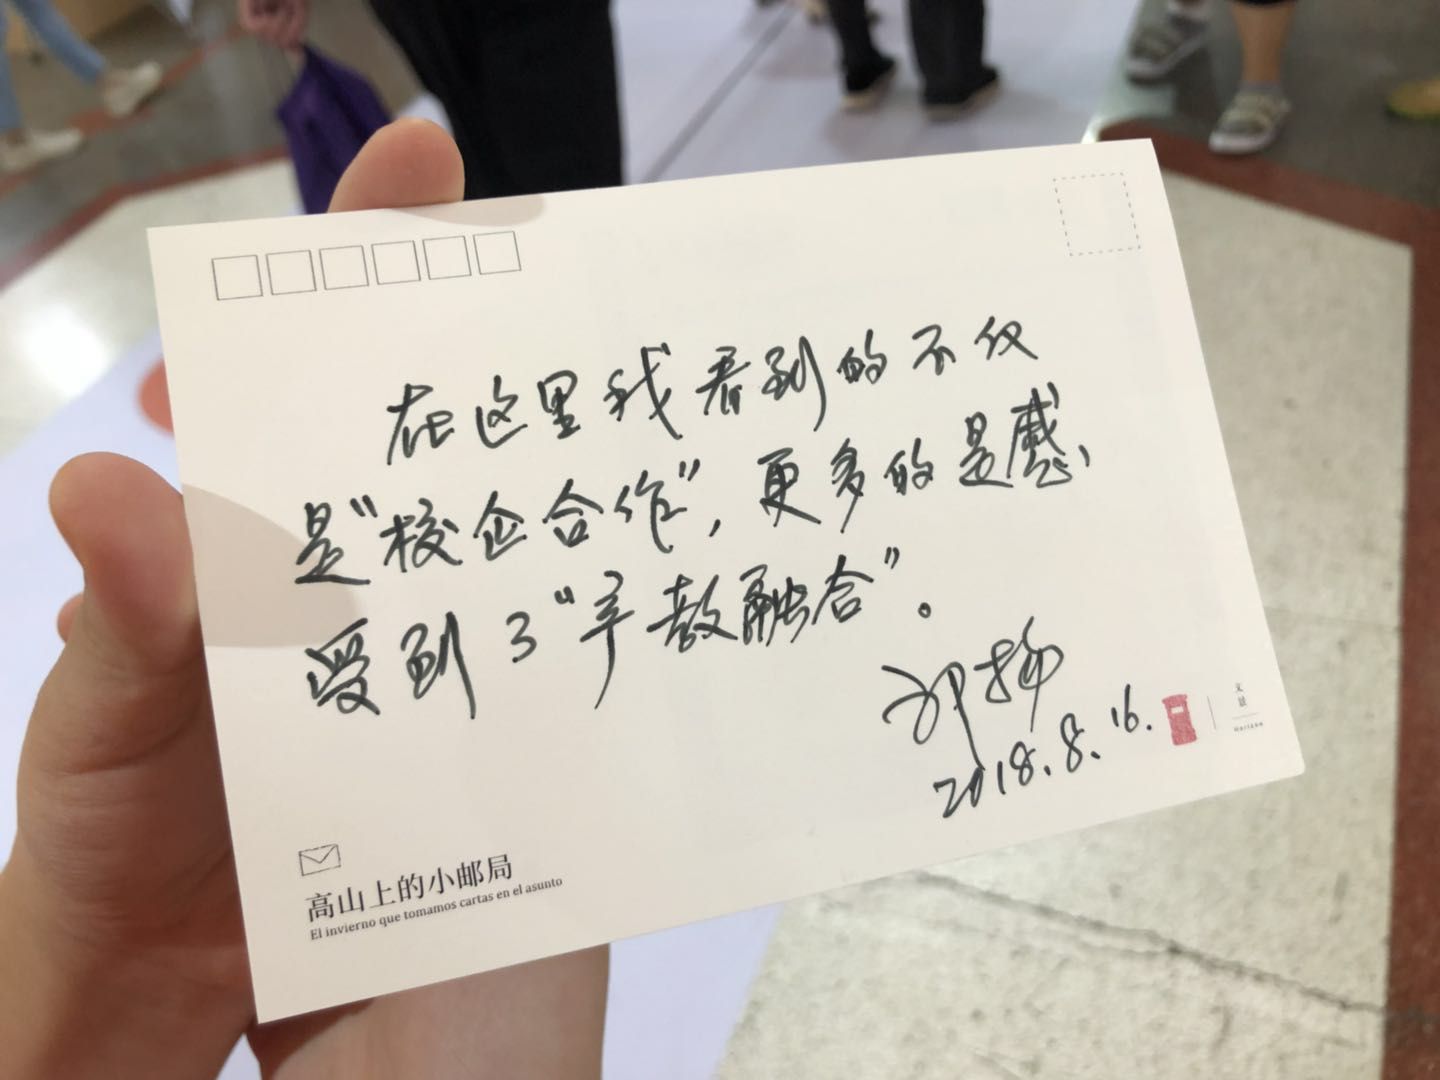 在这里我看到的不仅
是“校企合作”，更多的是感
受到了“产教融合”。
邓扬
2018.8.16.
文景
Horizon
高山上的小邮局
El invierno que tomamos cartas en el asunto